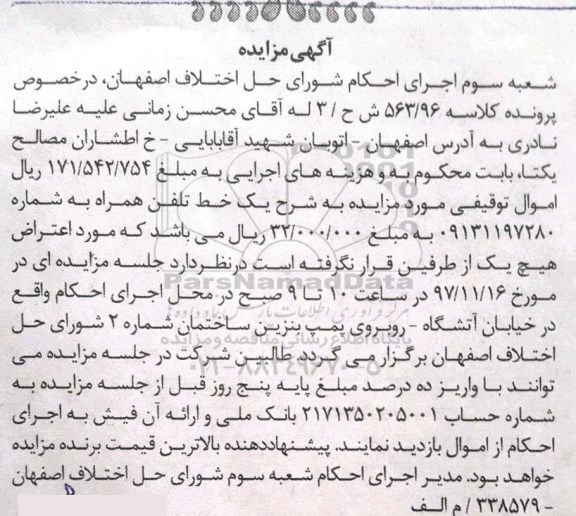 آگهی مزایده
شعبه سوم اجرای احکام شورای حل اختلاف اصفهان، درخصوص
پرونده کلاسه ۵۶۳/۹۶ ش ح / ۳ له آقای محسن زمانی علیه علیرضا
نادری به آدرس اصفهان - اتوبان شهید آقابابایی - خ اطشاران مصالح
یکتا، بابت محکوم به و هزینه های اجرایی به مبلغ ۱۷۱/۵۴۲/۷۵۴ ریال
اموال توقیفی مورد مزایده به شرح یک خط تلفن همراه به شماره
۰۹۱۳۱۱۹۷۲۸۰ به مبلغ ۳۲/۰۰۰/۰۰۰ ریال می باشد که مورد اعتراض
هیچ یک از طرفین قرار نگرفته است درنظردارد جلسه مزایده ای در
مورخ ۹۷/۱۱/۱۶ در ساعت ۱۰ تا ۹ صبح در محل اجرای احکام واقع
در خیابان آتشگاه - روبروی پمپ بنزین ساختمان شماره ۲ شورای حل
اختلاف اصفهان برگزار می گردد طالبین شرکت در جلسه مزایده می
توانند با واریز ده درصد مبلغ پایه پنج روز قبل از جلسه مزایده به
شماره حساب ۲۱۷۱۳۵۰۲۰۵۰۰۱ بانک ملی و ارائه آن فیش به اجرای
احکام از اموال بازدید نمایند. پیشنهاددهنده بالاترین قیمت برنده مزایده
خواهد بود. مدیر اجرای احکام شعبه سوم شورای حل اختلاف اصفهان
- ۳۳۸۵۷۹ / م الف
ParsNamadData
پایگاه اطلاع رسانی مناقصه و مزایده
۰۲۱-۸۸۳۴۹۶۷۰-۵